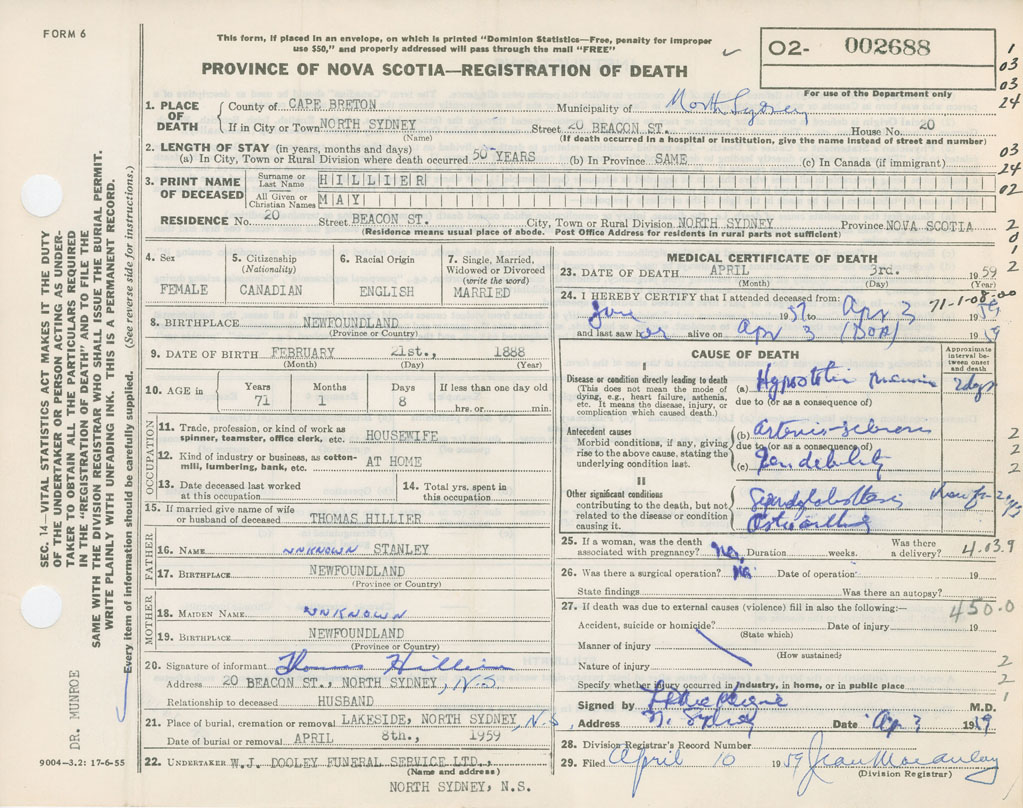 FORM 6
This form, if placed in an envelope, on which is printed "Dominion Statistics—Free, penalty for improper
use $50," and properly addressed will pass through the mail "FREE"
PROVINCE OF NOVA SCOTIA—REGISTRATION OF DEATH
02- 002688
For use of the Department only
1
03
03
24
03
24
02
2
0
1
2
1. PLACE OF DEATH
County of CAPE BRETON Municipality of North Sydney
If in City or Town NORTH SYDNEY Street 20 BEACON ST. House No. 20
(Name) (If death occurred in a hospital or institution, give the name instead of street and number)
2. LENGTH OF STAY (in years, months and days)
(a) In City, Town or Rural Division where death occurred 50 YEARS (b) In Province SAME (c) In Canada (if immigrant)
3. PRINT NAME OF DECEASED
Surname or Last Name HILLIER
All Given or Christian Names MAY
RESIDENCE No. 20 Street BEACON ST. City, Town or Rural Division NORTH SYDNEY Province NOVA SCOTIA
(Residence means usual place of abode. Post Office Address for residents in rural parts not sufficient)
4. Sex
FEMALE
5. Citizenship
(Nationality)
CANADIAN
6. Racial Origin
ENGLISH
7. Single, Married,
Widowed or Divorced
(write the word)
MARRIED
8. BIRTHPLACE NEWFOUNDLAND
(Province or Country)
9. DATE OF BIRTH FEBRUARY 21st., 1888
(Month) (Day) (Year)
10. AGE in
Years Months Days If less than one day old
71 1 8 hrs. or min.
OCCUPATION
11. Trade, profession, or kind of work as
spinner, teamster, office clerk, etc. HOUSEWIFE
12. Kind of industry or business, as cotton-
mill, lumbering, bank, etc. AT HOME
13. Date deceased last worked
at this occupation
14. Total yrs. spent in
this occupation
15. If married give name of wife
or husband of deceased THOMAS HILLIER
FATHER
16. NAME UNKNOWN STANLEY
17. BIRTHPLACE NEWFOUNDLAND
(Province or Country)
MOTHER
18. MAIDEN NAME UNKNOWN
19. BIRTHPLACE NEWFOUNDLAND
(Province or Country)
20. Signature of informant Thomas Hillier
Address 20 BEACON ST., NORTH SYDNEY, N.S
Relationship to deceased HUSBAND
21. Place of burial, cremation or removal LAKESIDE, NORTH SYDNEY, N.S
Date of burial or removal APRIL 8th., 1959
22. UNDERTAKER W.J. DOOLEY FUNERAL SERVICE LTD.,
(Name and address)
NORTH SYDNEY, N.S.
MEDICAL CERTIFICATE OF DEATH
23. DATE OF DEATH APRIL 3rd. 1959
(Month) (Day) (Year)
24. I HEREBY CERTIFY that I attended deceased from:
71-1-08-00
June 1957 to Apr 3 1959
and last saw her alive on Apr 3 (DOA) 1959
CAUSE OF DEATH
Approximate
interval be-
tween onset
and death
I
Disease or condition directly leading to death
(This does not mean the mode of
dying, e.g., heart failure, asthenia,
etc. It means the disease, injury, or
complication which caused death.)
(a) Hypostatic 2 days
due to (or as a consequence of)
Antecedent causes
Morbid conditions, if any, giving
rise to the above cause, stating the
underlying condition last.
(b) Arterio-sclerosis
due to (or as a consequence of)
(c) Gen debility
II
Other significant conditions
contributing to the death, but not
related to the disease or condition
causing it.
Osteoarthritis
2
2
2
2
25. If a woman, was the death
associated with pregnancy? No. Duration weeks. Was there
a delivery? 4.03.9
26. Was there a surgical operation? No Date of operation 19
State findings Was there an autopsy?
27. If death was due to external causes (violence) fill in also the following:— 450.0
Accident, suicide or homicide? Date of injury 19
(State which)
Manner of injury
(How sustained)
Nature of injury
Specify whether injury occurred in industry, in home, or in public place
2
2
1
Signed by M.D.
Address N. Sydney Date Apr 3 1959
28. Division Registrar's Record Number
29. Filed April 10 1959 Jean Macaulay
(Division Registrar)
SEC. 14—VITAL STATISTICS ACT MAKES IT THE DUTY
OF THE UNDERTAKER OR PERSON ACTING AS UNDER-
TAKER TO OBTAIN ALL THE PARTICULARS REQUIRED
IN THE "REGISTRATION OF DEATH" AND TO FILE THE
SAME WITH THE DIVISION REGISTRAR WHO SHALL ISSUE THE BURIAL PERMIT.
WRITE PLAINLY WITH UNFADING INK. THIS IS A PERMANENT RECORD.
Every item of information should be carefully supplied. (See reverse side for instructions.)
DR. MUNROE
9004-3.2: 17-6-55